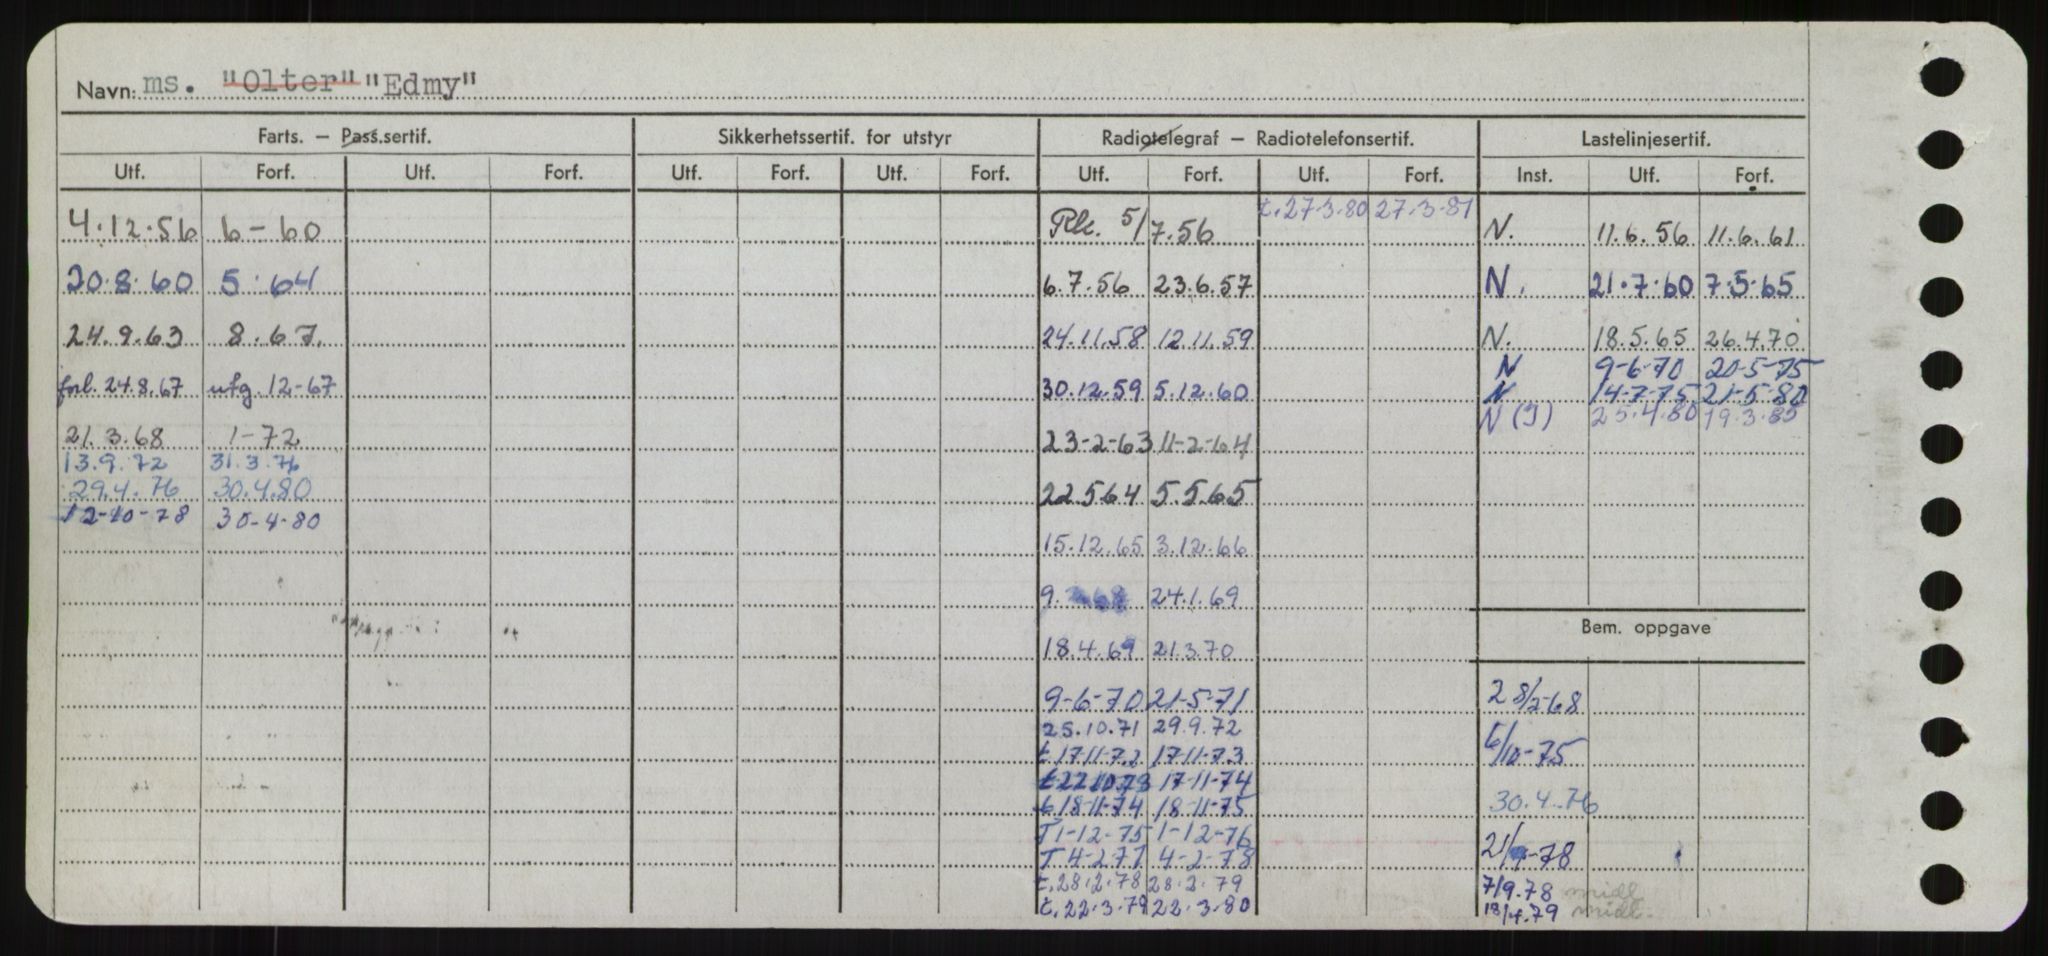 Navn: ms. "Olter" "Edmy"
Farts. — Pass.sertif. Sikkerhetssertif. for utstyr Radiotelegraf — Radiotelefonsertif. Lastelinjesertif.
Utf. Forf. Utf. Forf. Utf. Forf. Utf. Forf. Utf. Forf. Utf. Forf. Inst. Utf. Forf.
t. 27-3-80 27-3-81
4.12.56 6-60 5/7.56 N. 11.6.56 11.6.61
20.8.60 5.64 6.7.56 23.6.57 N. 21.7.60 7.5.65
24.9.63 8.67. 24.11.58 12.11.59 N. 18.5.65 26.4.70
N 9-6-70 20-5-75
forl. 24.8.67 utg. 12-67 30.12.59 5.12.60 N 14-7-75 21-5-80
N (I) 25.4.80 19.3.85
21.3.68 1-72 23-2-63 11-2-64
13.9.72 31.3.76
29.4.76 30.4.80 22.5.64 5.5.65
12-10-78 30-4-80
15.12.65 3.12.66
9. 24.1.69
Bem. oppgave
18.4.69 21.3.70
9-6-70 21-5-71 28/2-68
25.10.71 29.9.72
t. 17-11-72 17-11-73 6/10-75
t 22.10.73 17-11-74
t. 18-11-74 18-11-75 30.4.76
T 1-12-75 1-12-76
T 4-2-77 4-2-78 21/-78
t. 28.2.78 28.2.79 7/9.78 midl
t. 22.3.79 22.3.80 18/4.79 midl.